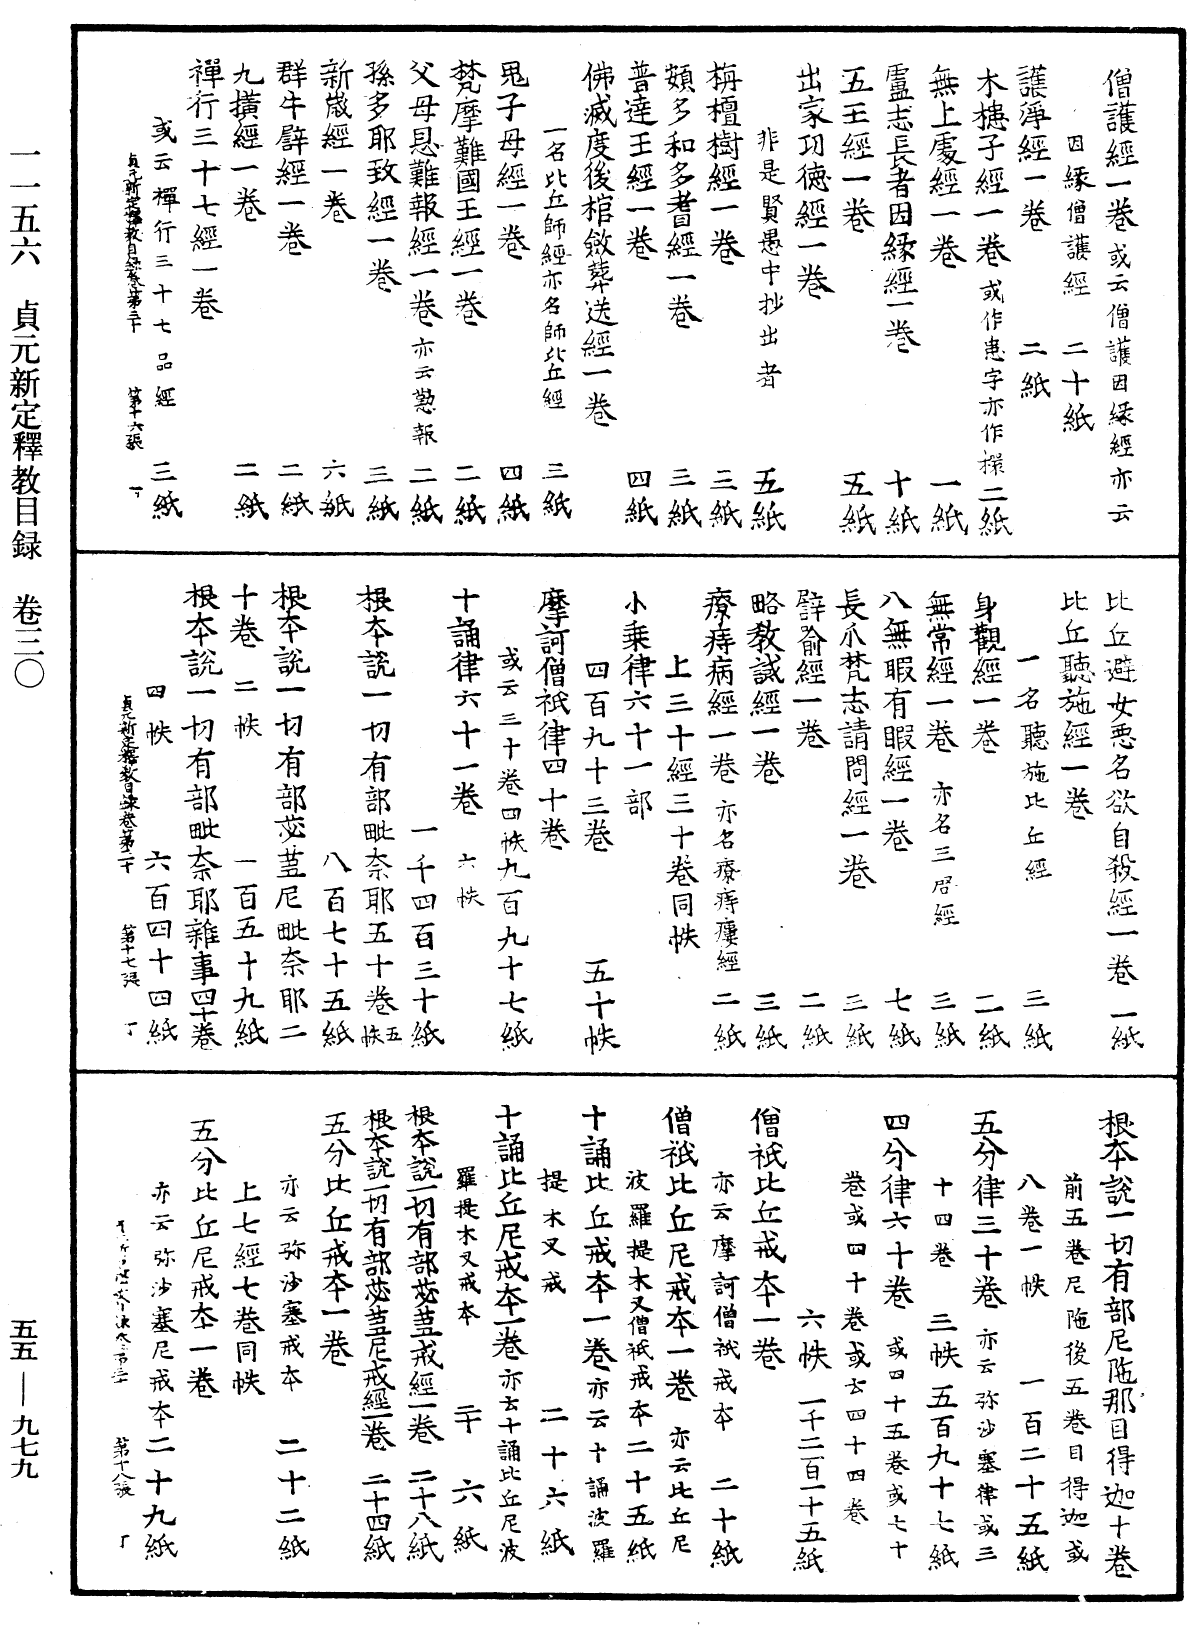 一一五六　貞元新定釋教目録　卷三〇
五五—九七九
僧護經一卷 或云僧護因緣經亦云
因緣僧護經　二十紙
護淨經一卷　二紙
木槵子經一卷 或作患字亦作櫘 二紙
無上處經一卷　一紙
盧志長者因緣經一卷　十紙
五王經一卷　五紙
出家功徳經一卷
非是賢愚中抄出者　五紙
栴檀樹經一卷　三紙
頞多和多耆經一卷　三紙
普達王經一卷　四紙
佛滅度後棺斂葬送經一卷
一名比丘師經亦名師比丘經　三紙
鬼子母經一卷　四紙
梵摩難國王經一卷　二紙
父母恩難報經一卷 亦云懃報　二紙
孫多耶致經一卷　三紙
新歲經一卷　六紙
群牛譬經一卷　二紙
九橫經一卷　二紙
禪行三十七經一卷
或云禪行三十七品經　三紙
貞元新定釋教目録卷第三十　第十六張　丁
比丘避女惡名欲自殺經一卷　一紙
比丘聽施經一卷
一名聽施比丘經　三紙
身觀經一卷　二紙
無常經一卷　亦名三啓經　三紙
八無暇有暇經一卷　七紙
長爪梵志請問經一卷　三紙
譬喻經一卷　二紙
略教誡經一卷　三紙
療痔病經一卷 亦名療痔瘻經　二紙
上三十經三十卷同帙
小乘律六十一部
四百九十三卷　五十帙
摩訶僧祇律四十卷
或云三十卷四帙九百九十七紙
十誦律六十一卷　六帙
一千四百三十紙
根本說一切有部毗奈耶五十卷 五帙
八百七十五紙
根本說一切有部苾蒭尼毗奈耶二
十卷　二帙　一百五十九紙
根本說一切有部毗奈耶雜事四十卷
四帙　六百四十四紙
貞元新定釋教目録卷第三十　第十七張　丁
根本說一切有部尼陁那目得迦十卷
前五卷尼陁後五卷目得迦或
八卷一帙　一百二十五紙
五分律三十卷　亦云弥沙塞律或三
十四卷　三帙　五百九十七紙
四分律六十卷　或四十五卷或七十
卷或四十卷或云四十四卷
六帙　一千二百一十五紙
僧祇比丘戒本一卷
亦云摩訶僧祇戒本　二十紙
僧祇比丘尼戒本一卷　亦云比丘尼
波羅提木叉僧祇戒本二十五紙
十誦比丘戒本一卷 亦云十誦波羅
提木叉戒　二十六紙
十誦比丘尼戒本一卷 亦云十誦比丘尼波
羅提木叉戒本　二十六紙
根本說一切有部苾蒭戒經一卷　二十八紙
根本說一切有部苾蒭尼戒經一卷　二十四紙
五分比丘戒本一卷
亦云弥沙塞戒本　二十二紙
上七經七卷同帙
五分比丘尼戒本一卷
亦云弥沙塞尼戒本二十九紙
第十八張　丁